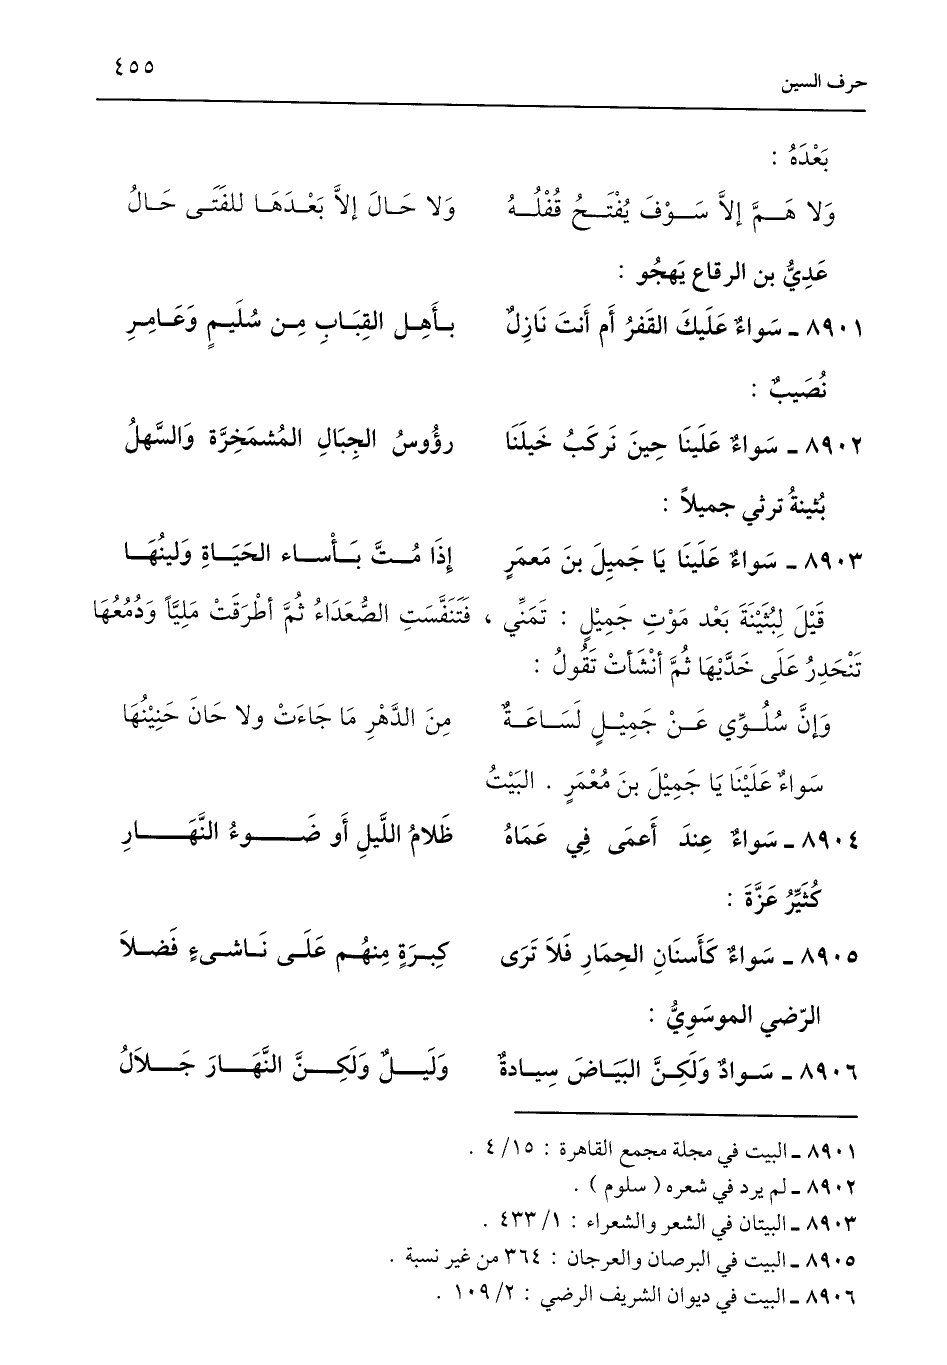 حرف السين ٤٥٥
بَعْدَهُ :
وَلا هَـمَّ إلاَّ سَـوْفَ يُفْتَـحُ قُفْلُـهُ وَلا حَـالَ إلاَّ بَعْـدَهَـا للفَتَـى حَـالُ
عَدِيُّ بن الرقاع يَهجُو :
٨٩٠١ ـ سَواءٌ عَلَيكَ القَفرُ أم أَنتَ نَازِلٌ بـأَهـل القِبَـابِ مِـن سُلَيـمٍ وَعَـامِـرِ
نُصَيبٌ :
٨٩٠٢ ـ سَواءٌ عَلَينَا حِينَ نَركَبُ خَيلَنَا رؤُوسُ الجِبَالِ المُشمَخِرَّة وَالسَّهلُ
بُثينةُ ترثي جميلاً :
٨٩٠٣ ـ سَواءٌ عَلَينَا يَا جَميِلَ بنَ مَعمَرٍ إِذَا مُـتَّ بَـأْسـاء الحَيَـاةِ وَلينُهَـا
قَيْلَ لِبُثَيْنَةَ بَعْد مَوْتِ جَمِيْلٍ : تَمَنِّي ، فَتَنَفَّسَتِ الصُّعَدَاءُ ثُمَّ أطْرَقَتْ مَلِيَّاً وَدُمُعُهَا
تَنْحَدِرُ عَلَى خَدَّيْهَا ثُمَّ أنْشَأتْ تَقُولُ :
وَإنَّ سُلُـوِّي عَـنْ جَمِيْـلٍ لَسَـاعَـةٌ مِنَ الدَّهْرِ مَا جَاءَتْ ولا حَانَ حَنِيْنُهَا
سَواءٌ عَلَيْنَا يَا جَمِيْلَ بنَ مُعْمَرٍ . البَيْتُ
٨٩٠٤ ـ سَـواءٌ عِندَ أَعمَى فِي عَمَاهُ ظَلامُ اللَّيلِ أَو ضَـوءُ النَّهَـارِ
كُثَيِّرُ عَزَّةَ :
٨٩٠٥ ـ سَواءٌ كَأَسنَانِ الحِمَارِ فَلاَ تَرَى كِبـرَةٍ مِنهُـم عَلَـى نَـاشـىءٍ فَضـلاَ
الرّضي الموسَوِيُّ :
٨٩٠٦ ـ سَـوادٌ وَلَكِـنَّ البَيَـاضَ سِيـادةٌ وَلَيـلٌ وَلَكِـنَّ النَّهَـارَ جَـلاَلُ
٨٩٠١ ـ البيت في مجلة مجمع القاهرة : ١٥/ ٤ .
٨٩٠٢ ـ لم يرد في شعره ( سلوم ) .
٨٩٠٣ ـ البيتان في الشعر والشعراء : ١/ ٤٣٣ .
٨٩٠٥ ـ البيت في البرصان والعرجان : ٣٦٤ من غير نسبة .
٨٩٠٦ ـ البيت في ديوان الشريف الرضي : ٢/ ١٠٩ .